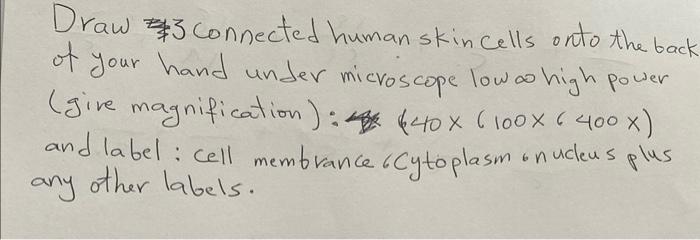 Draw 3 connected human skin cells onto the back
of your hand under microscope low ∞ high power
(give magnification): 40x ( 100x ( 400x)
and label: cell membrance (Cytoplasm , nucleus plus
any other labels.